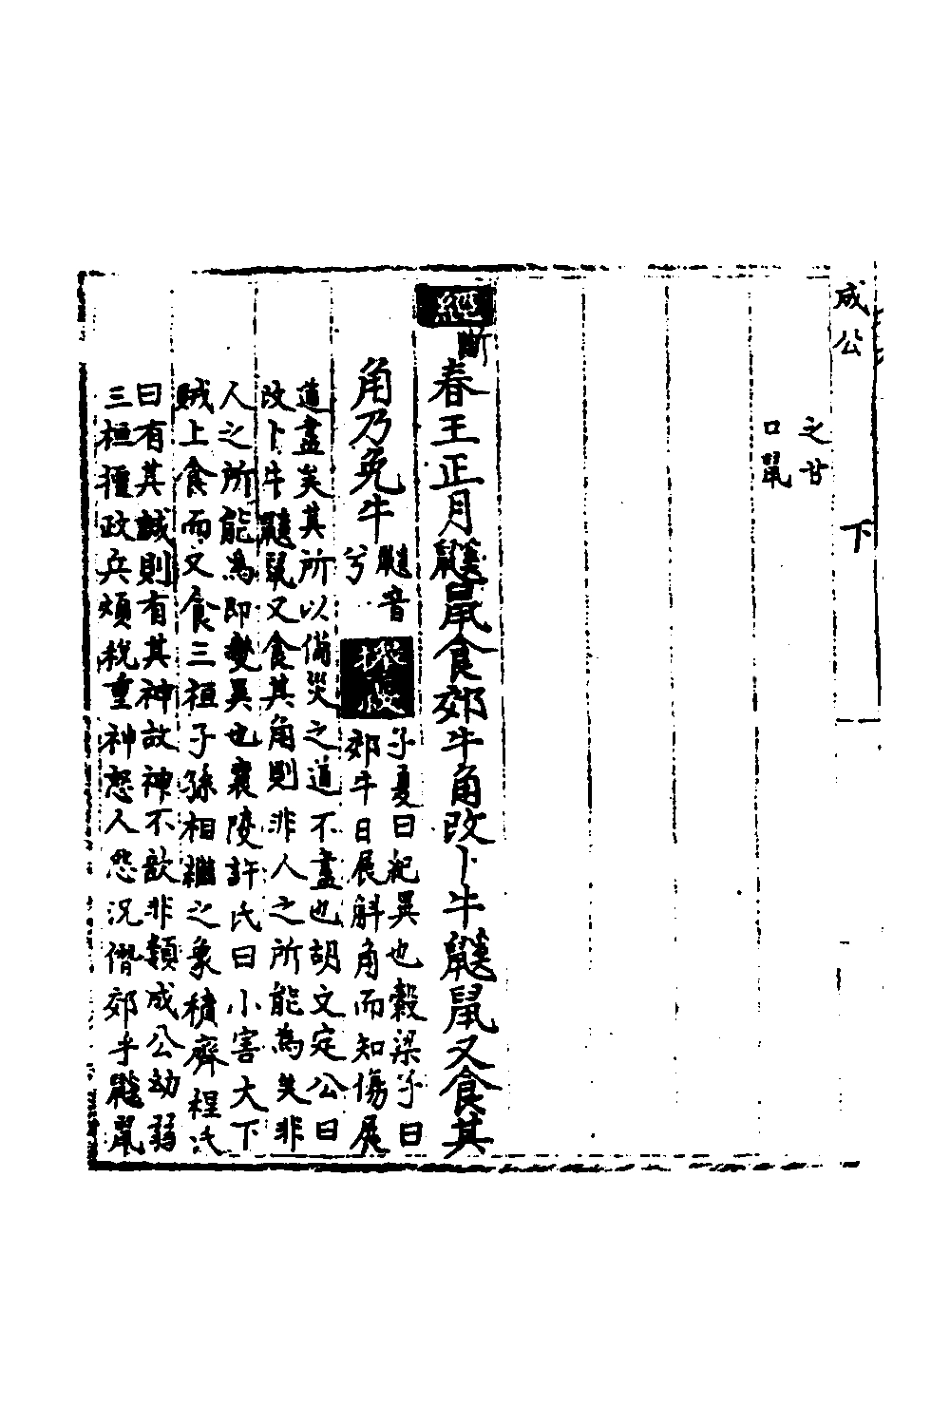 成公　下
之甘
口鼠
經
斷
春王正月鼷鼠食郊牛角改卜牛鼷鼠又食其
角乃免牛
鼷音
兮
子夏曰紀異也穀梁子曰
郊牛日展斛角而知傷展
道盡矣其所以備災之道不盡也胡文定公曰
改卜牛鼷鼠又食其角則非人之所能為矣非
人之所能為即變異也襄陵許氏曰小害大下
賊上食而又食三桓子孫相繼之象積齊程氏
曰有其誠則有其神故神不歆非類成公幼弱
三桓擅政兵煩稅重神怒人怨況僭郊乎鼷鼠